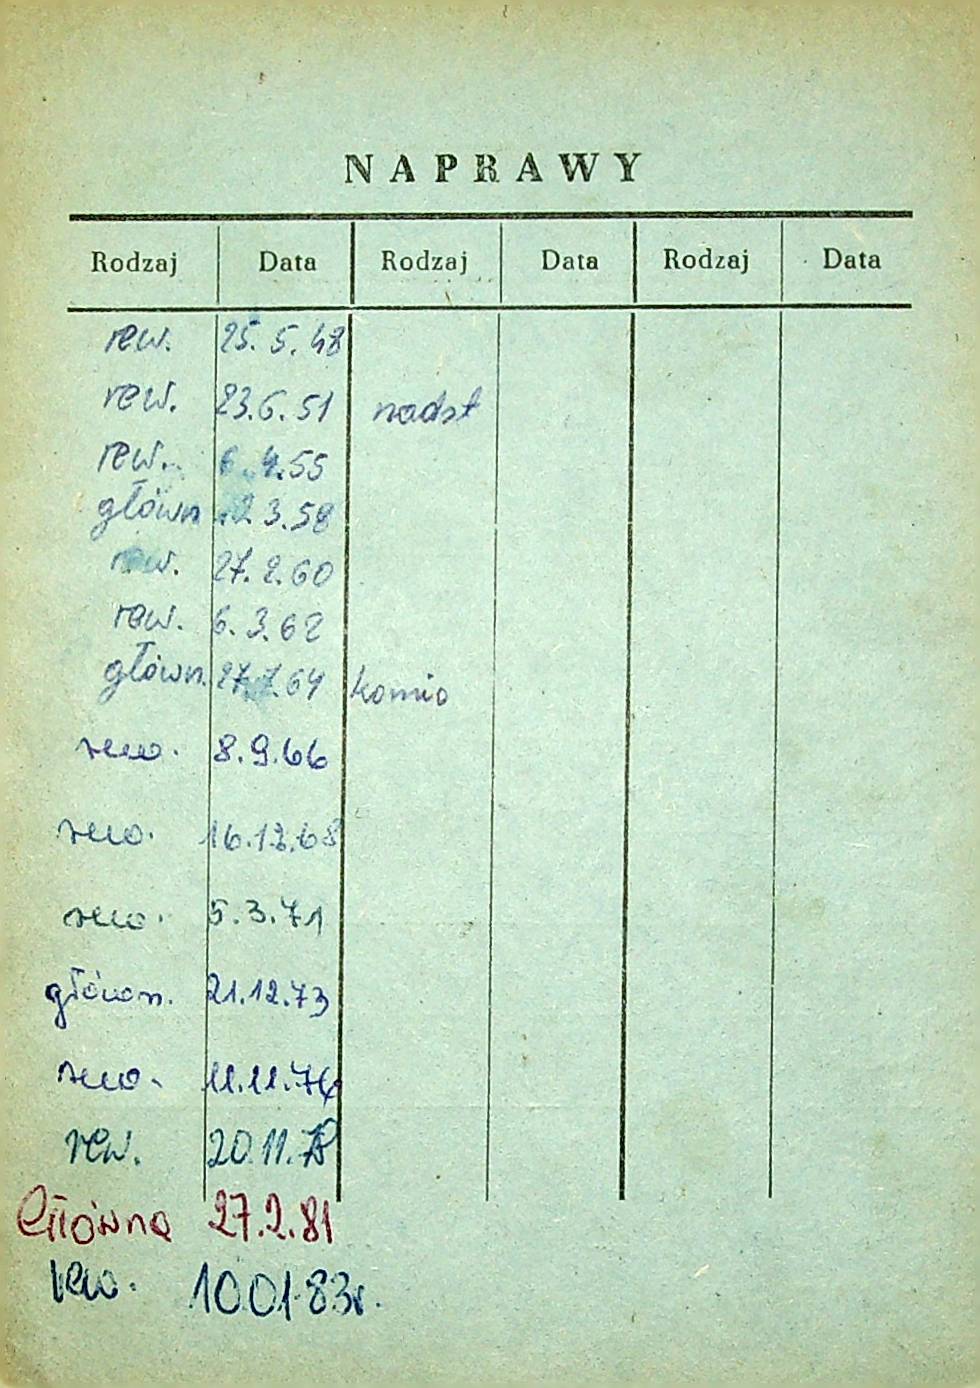 NAPRAWY
Rodzaj Data Rodzaj Data Rodzaj Data
rew. 25.5.48
rew. 23.6.51 nadst
rew. 6.4.55
główn 12.3.58
rew. 27.2.60
rew. 6.3.62
główn. 27.7.64 komio
rew. 8.9.66
rew. 16.12.68
rew. 5.3.71
główn. 21.12.73
rew. 11.11.76
rew. 20.11.78
Główna 27.2.81
rew. 10.01.83r.